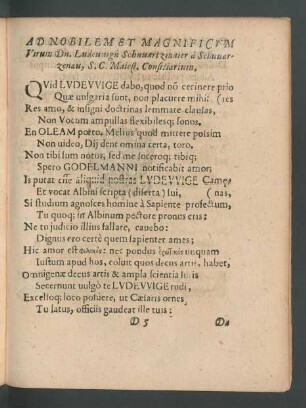 AD NOBILEM ET MAGNIFICVM
Virum Dn. Ludeuuigũ Schuuartzmaier à Schuuar-
zenau, S. C. Maiest. Consiliarium.
QVid LVDEVVIGE dabo, quod nõ cecinere prio
Quæ uulgaria sunt, non placuere mihi: (res
Res amo, & insigni doctrinas lemmate clausas,
Non Vocum ampullas flexibilesq; sonos.
En OLEAM porto, Melius quod mittere possim
Non uideo, Dij dent omina certa, toro.
Non tibi sum notus, sed me soceroq; tibiq;
Spero GODELMANNI notificabit amor;
Is putat esse aliquid nostras LVDEVVIGE Camœ
Et vocat Albini scripta (diserta) lui, (nas,
Si studium agnosces homine à Sapiente profectum,
Tu quoq; in Albinum pectore pronus eris:
Ne tu judicio illius fallare, cauebo:
Dignus ero certè quem sapienter ames;
Hic amor est nec pondus unquam
Iustum apud hos, coluit quos decus artis, habet,
Omnigenæ decus artis & ampla scientia
Secernunt uulgò te LVDEVVIGE rudi,
Excelsoq; loco posuere, ut Cæsaris ornes
Tu latus, officiis gaudeat ille tuis:
D 5 Da